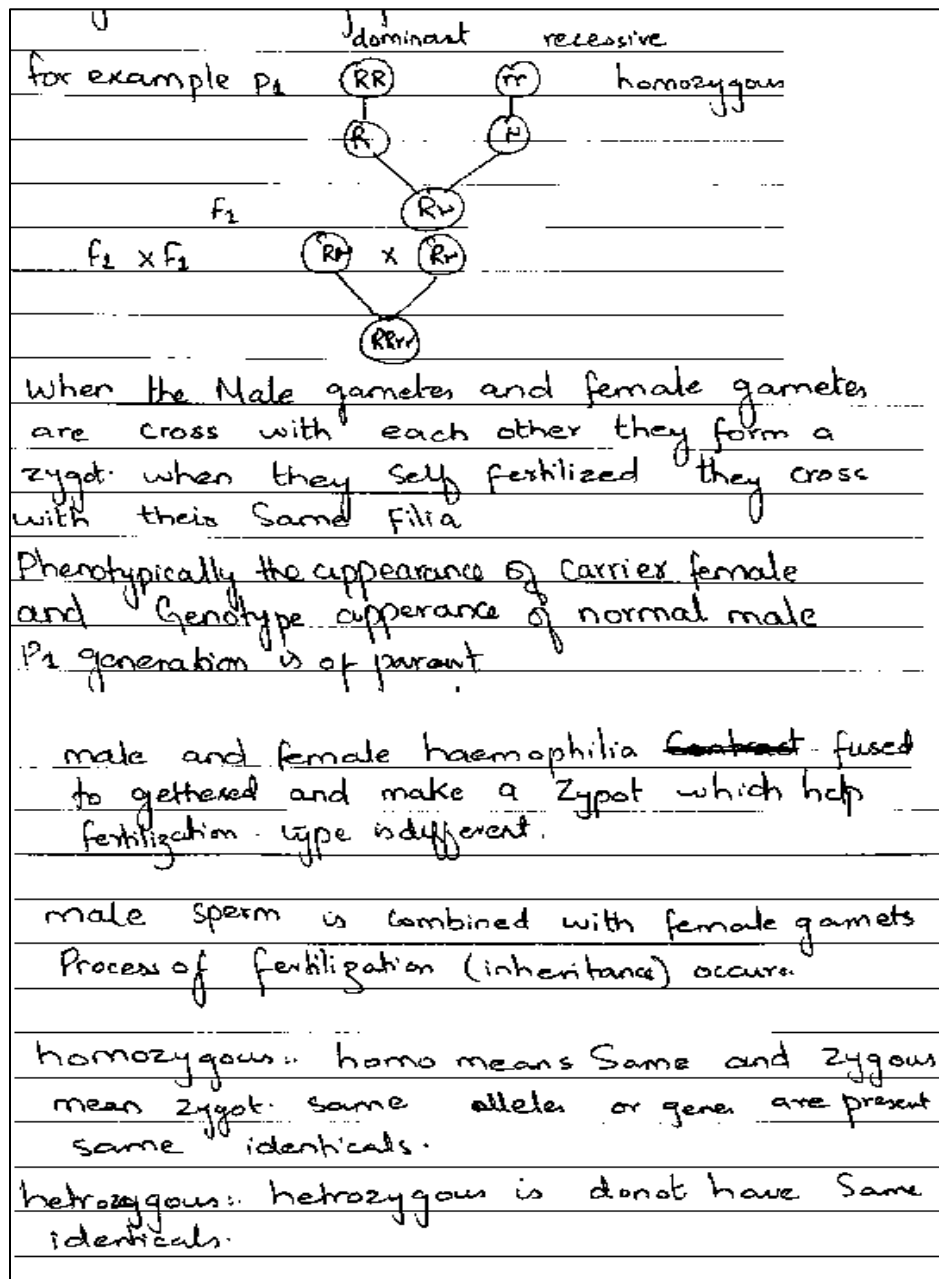 dominant recessive
for example P1 RR rr homozygous
R r
F1 Rr
F1 x F1 Rr x Rr
RRrr
When the Male gametes and female gametes
are cross with each other they form a
zygot. when they self fertilized they cross
with their Same Filia
Phenotypically the appearance of Carrier female
and Genotype apperance of normal male
P1 generation is of parant
male and female haemophilia fused
to gethered and make a Zypot which help
fertilization. type is different.
male sperm is combined with female gamets
Process of fertilization (inheritance) occurs.
homozygous:. homo means Same and Zygous
mean zygot. same alleles or genes are present
same identicals.
hetrozygous:. hetrozygous is donot have Same
identicals.